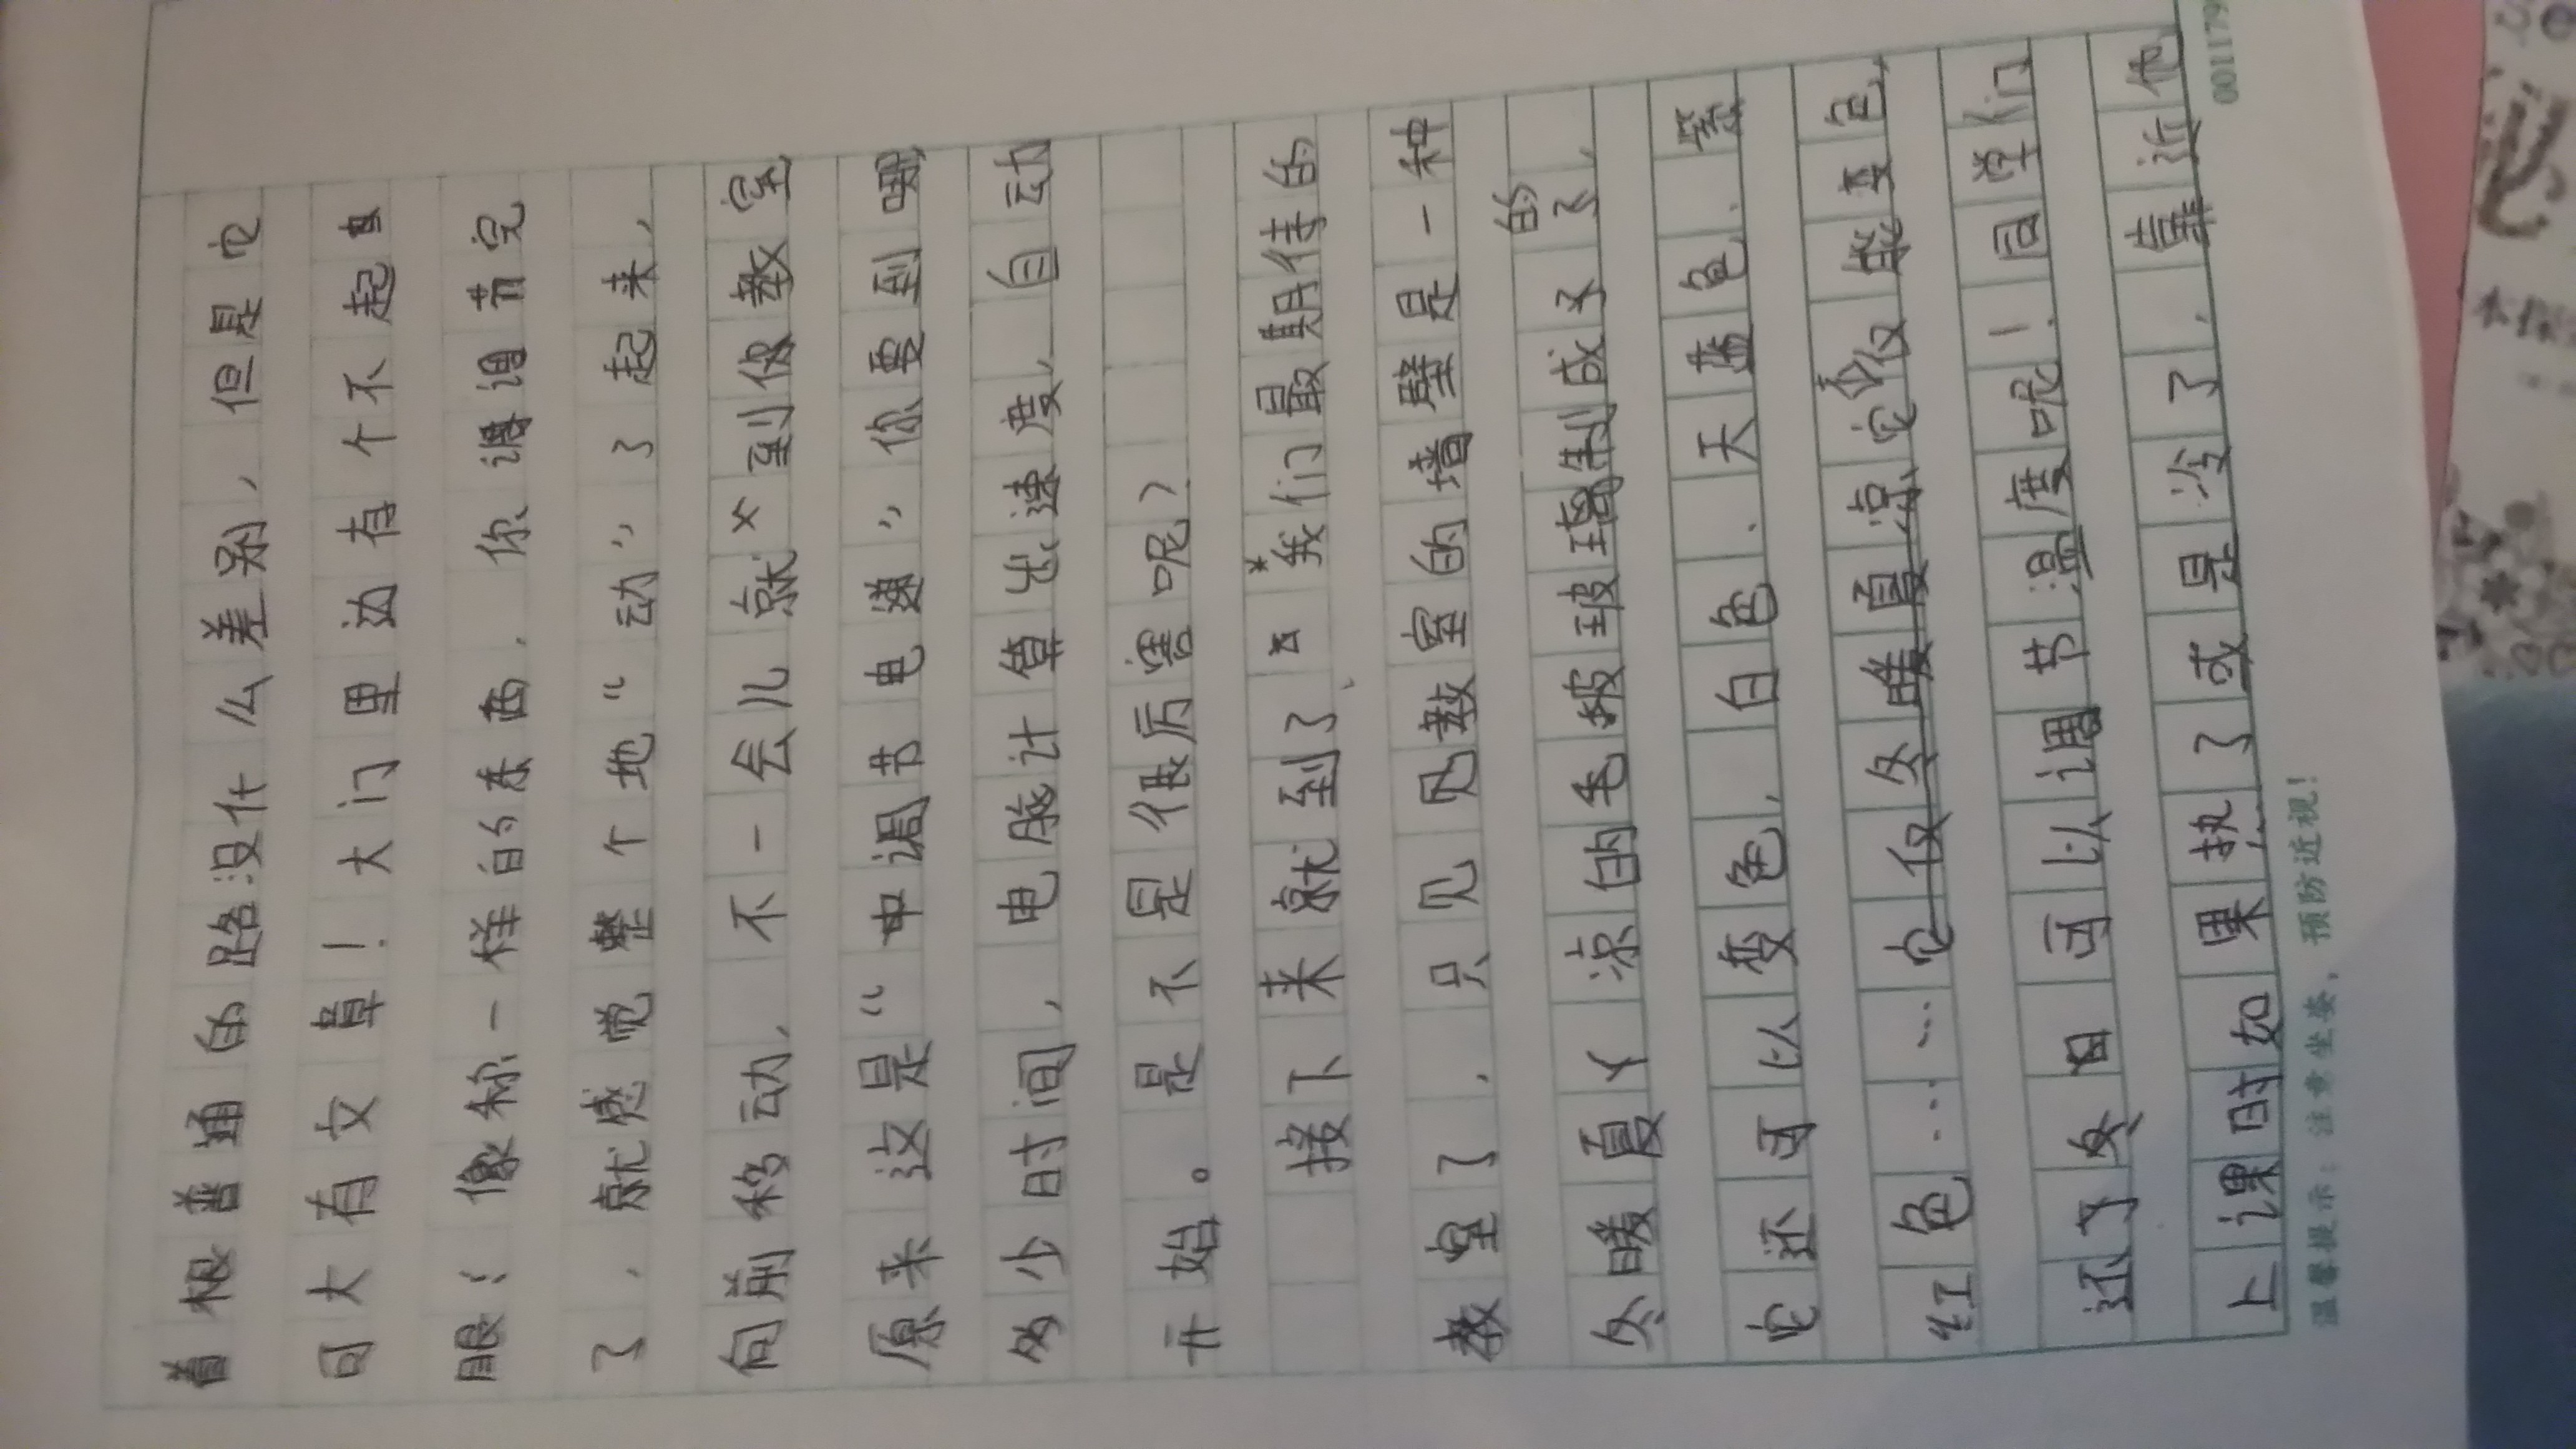 着很普通的路没什么差别，但是它
可大有文章！大门里边有个不起
眼：像称一样的东西，你调节完
了，就感觉整个地“动”了起来，
向前移动，不一会儿就到你教室
原来这是“电速”你要到哪
多少时间，电脑计算出速度，自动
开始。是不是很厉害呢？
接下来就到了我们最期待的
教室了，只见教室的墙壁是一种
冬暖夏凉的玻璃制成的了，
它还可以变色，白色、天蓝色、紫
红色……它仅能变色
还可以调节温度呢！同学们
上课时如果热了或是冷了，靠近他
温馨提示：注意坐姿，预防近视！